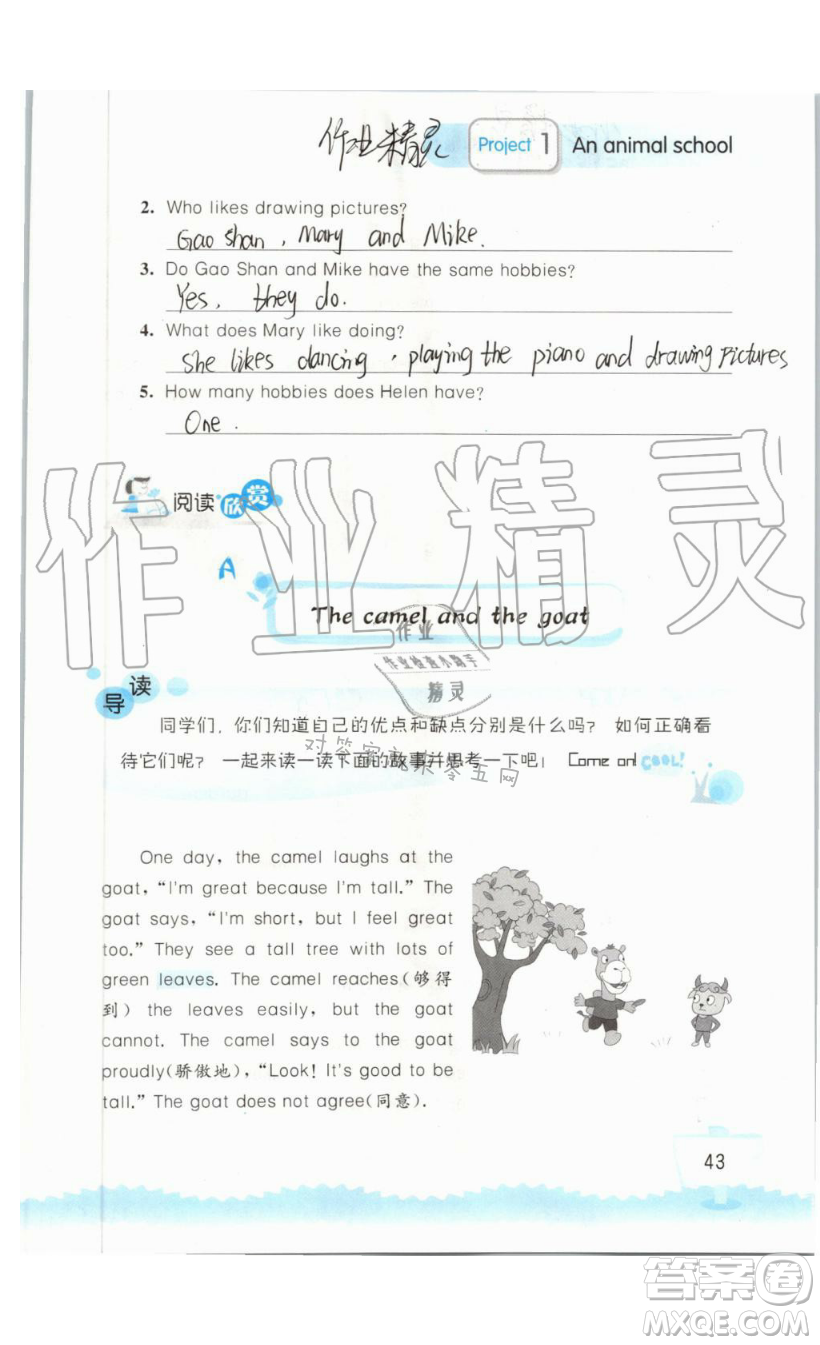 作业精灵
Project 1 An animal school
2. Who likes drawing pictures?
Gao Shan, Mary and Mike.
3. Do Gao Shan and Mike have the same hobbies?
Yes, they do.
4. What does Mary like doing?
She likes dancing, playing the piano and drawing pictures
5. How many hobbies does Helen have?
One.
阅读欣赏
作业精灵
A
The camel and the goat
作业
作业检查小助手
精灵
导读
同学们，你们知道自己的优点和缺点分别是什么吗？ 如何正确看
待它们呢？ 一起来读一读下面的故事并思考一下吧！ Come on! COOL!
对答案就来零五网
One day, the camel laughs at the
goat, “I'm great because I'm tall.” The
goat says, “I'm short, but I feel great
too.” They see a tall tree with lots of
green leaves. The camel reaches(够得
到) the leaves easily, but the goat
cannot. The camel says to the goat
proudly(骄傲地), “Look! It's good to be
tall.” The goat does not agree(同意).
43
答案圈
MXQE.COM